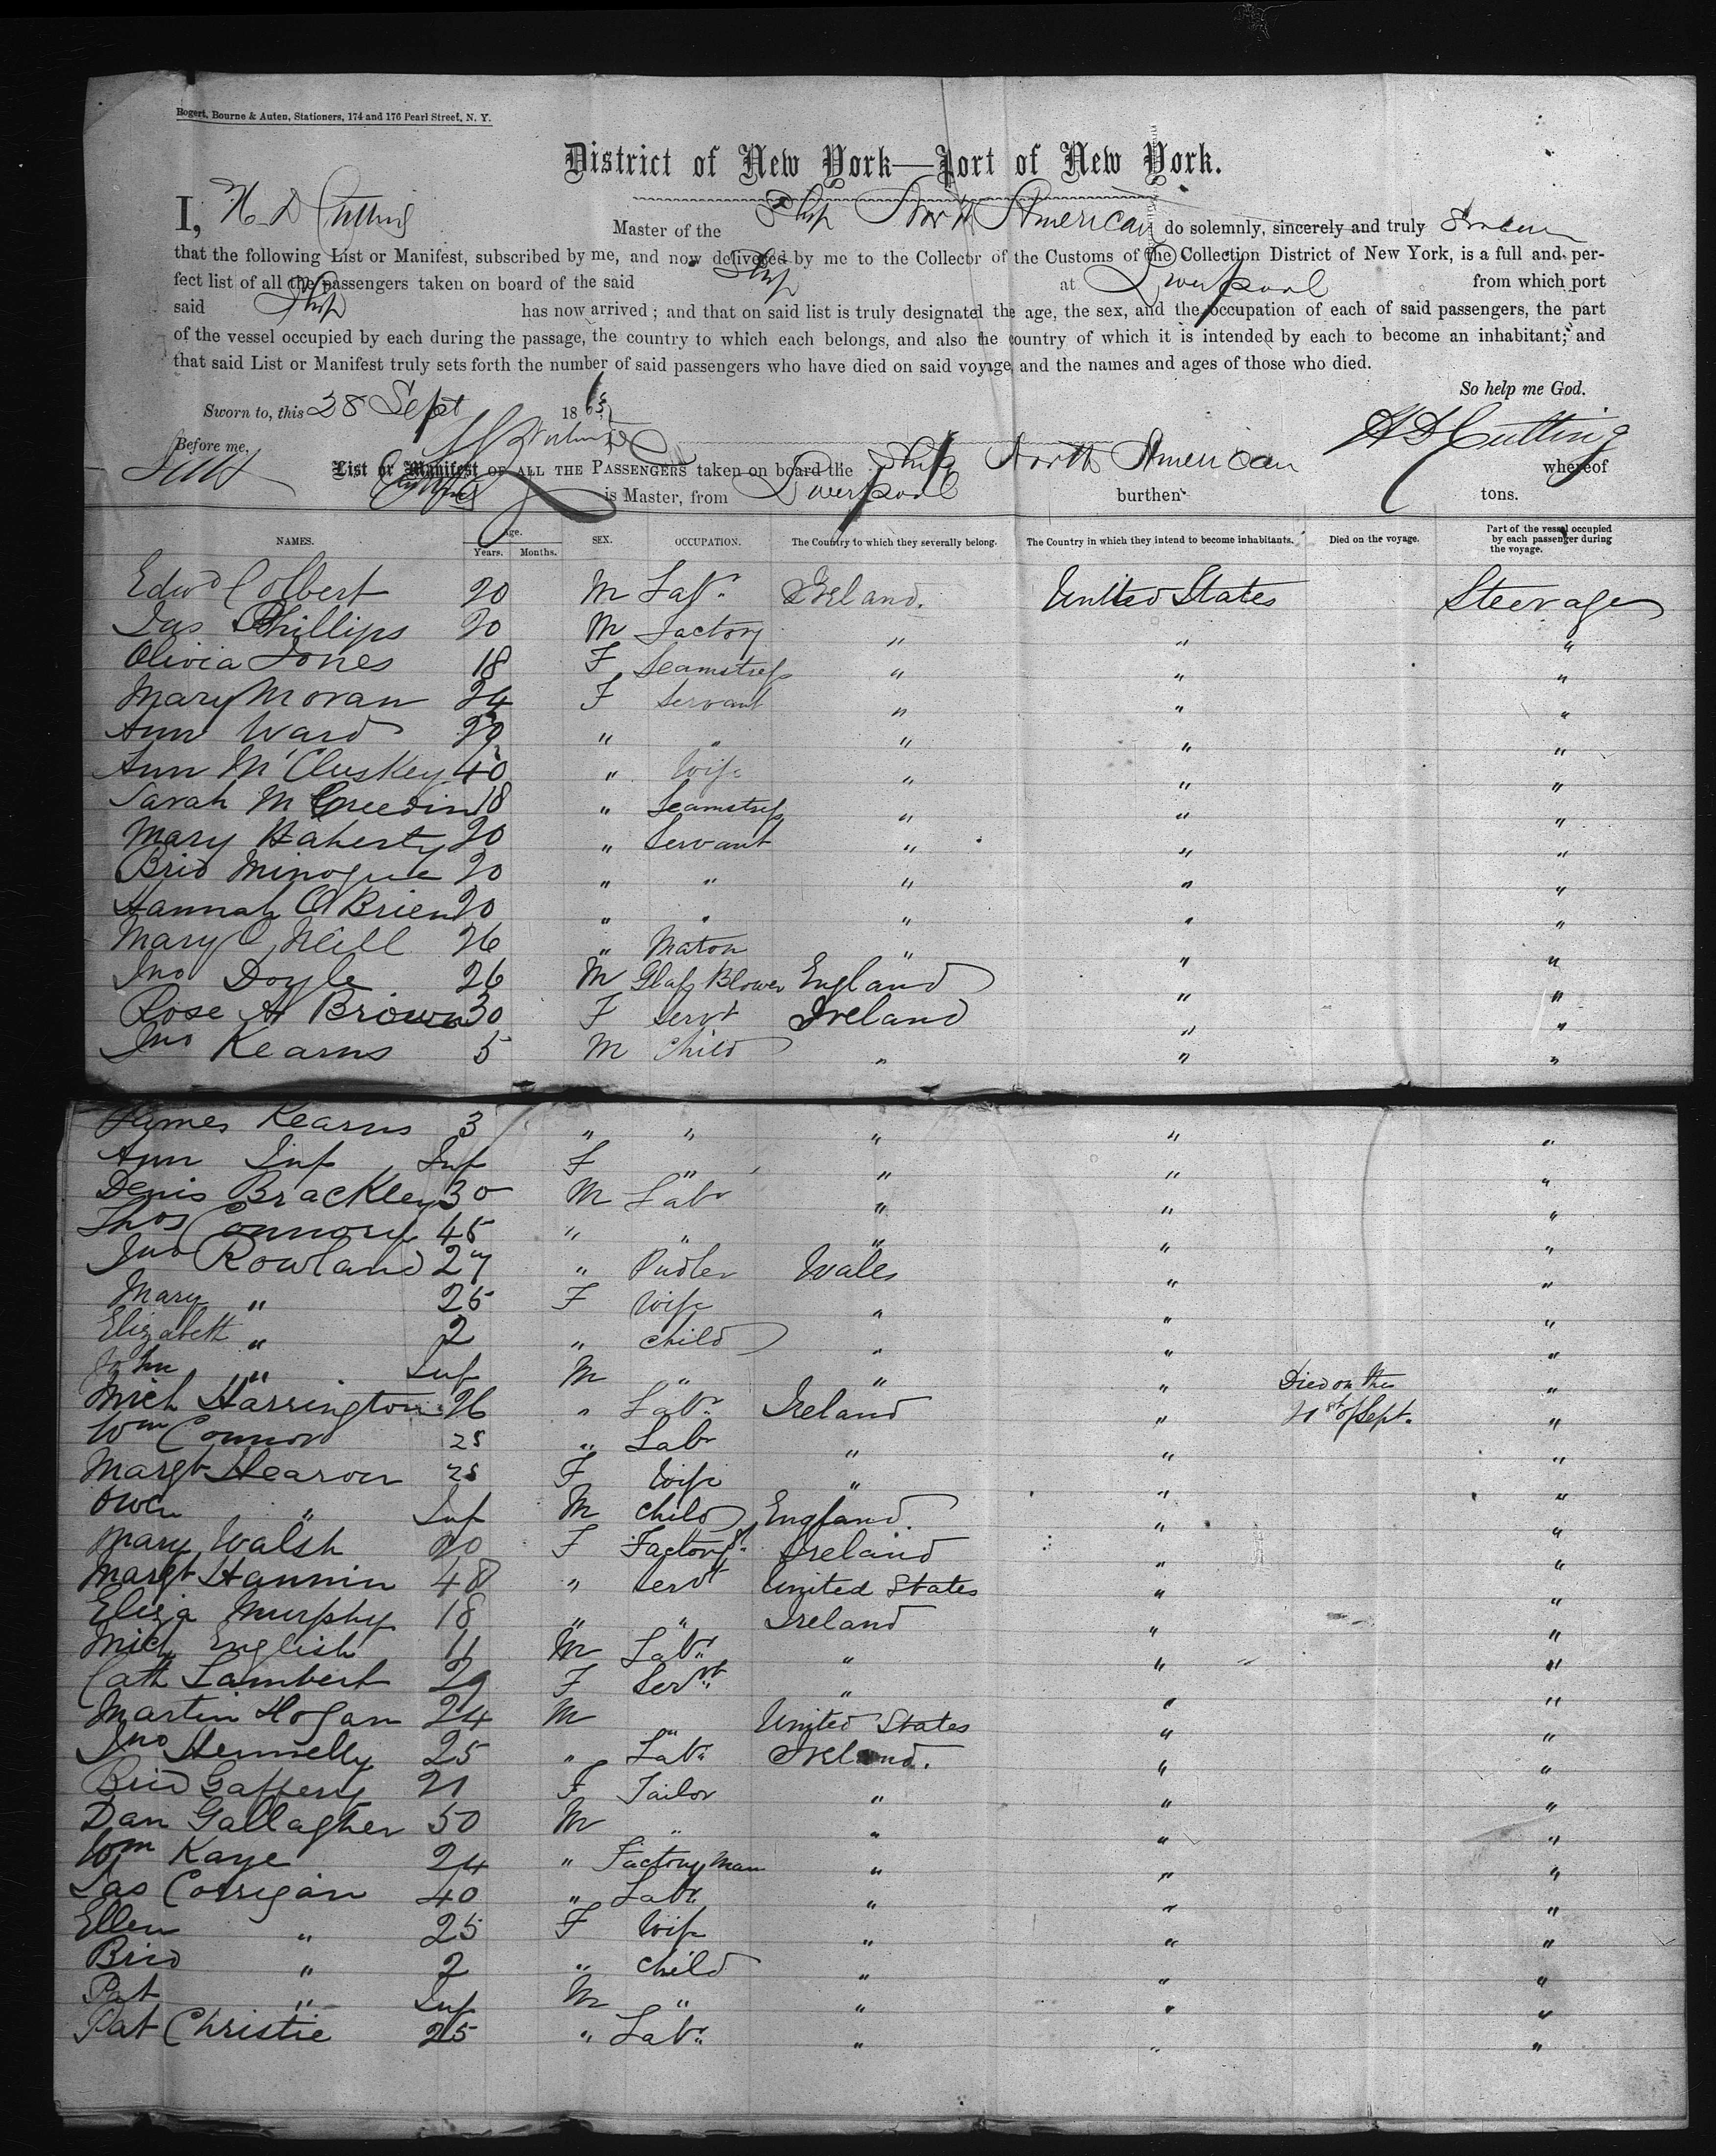 Bogert, Bourne & Auten, Stationers, 174 and 176 Pearl Street, N. Y.
District of New York—Port of New York.
I, H D Cutting Master of the Ship North American do solemnly, sincerely and truly swear
that the following List or Manifest, subscribed by me, and now delivered by me to the Collector of the Customs of the Collection District of New York, is a full and per-
fect list of all the passengers taken on board of the said Ship at Liverpool from which port
said Ship has now arrived; and that on said list is truly designated the age, the sex, and the occupation of each of said passengers, the part
of the vessel occupied by each during the passage, the country to which each belongs, and also the country of which it is intended by each to become an inhabitant; and
that said List or Manifest truly sets forth the number of said passengers who have died on said voyage, and the names and ages of those who died.
So help me God.
Sworn to, this 28 Sept 1865
H D Cutting
Before me,
List or Manifest OF ALL THE PASSENGERS taken on board the Ship North American whereof
is Master, from Liverpool burthen tons.
NAMES. Age. Years. Months. SEX. OCCUPATION. The Country to which they severally belong. The Country in which they intend to become inhabitants. Died on the voyage. Part of the vessel occupied by each passenger during the voyage.
Edwd Colbert 20 M Labr Ireland. United States Steerage
Jas Phillips 20 M Factory " " "
Olivia Jones 18 F Seamstress " " "
Mary Moran 24 F Servant " " "
Ann Ward " " " " "
Ann McCluskey 40 " Wife " " "
Sarah 18 " Seamstress " " "
Mary Haherty 20 " Servant " " "
Brid Minogue 20 " " " " "
Hannah O'Brien 20 " " " " "
Mary O'Neill 26 " Maton " " "
Jno Doyle 26 M Glass Blower England " "
Rose A Brown 30 F Servt Ireland " "
Jno Kearns 5 M Child " " "
James Kearns 3 " " " " "
Ann Inf Inf F " " " "
Denis Brackley 30 M Labr " " "
Thos Connory 45 " " " " "
Jno Rowland 27 " Pudler Wales " "
Mary " 25 F Wife " " "
Elizabeth " 2 " Child " " "
John " Inf M " " " Died on the "
Mich Harrington 26 " Labr Ireland " 21st of Sept. "
Wm Connor 25 " Labr " " "
Margt Hearon 25 F Wife " " "
Owen " Inf M Child England " "
Mary Walsh 20 F Factory Ireland " "
Margt Hannin 48 " Servt United States " "
Eliza Murphy 18 " " Ireland " "
Mich English 11 M Labr " " "
Cath Lambert 29 F Servt " " "
Martin Hogan 24 M " United States " "
Jno Hennelly 25 " Labr Ireland. " "
Brid Gaffery 21 F Tailor " " "
Dan Gallagher 50 M " " " "
Wm Kaye 24 " Factory Man " " "
Jas Corrigan 40 " Labr " " "
Ellen " 25 F Wife " " "
Brid " 2 " Child " " "
Pat " Inf M " " " "
Pat Christie 25 " Labr " " "